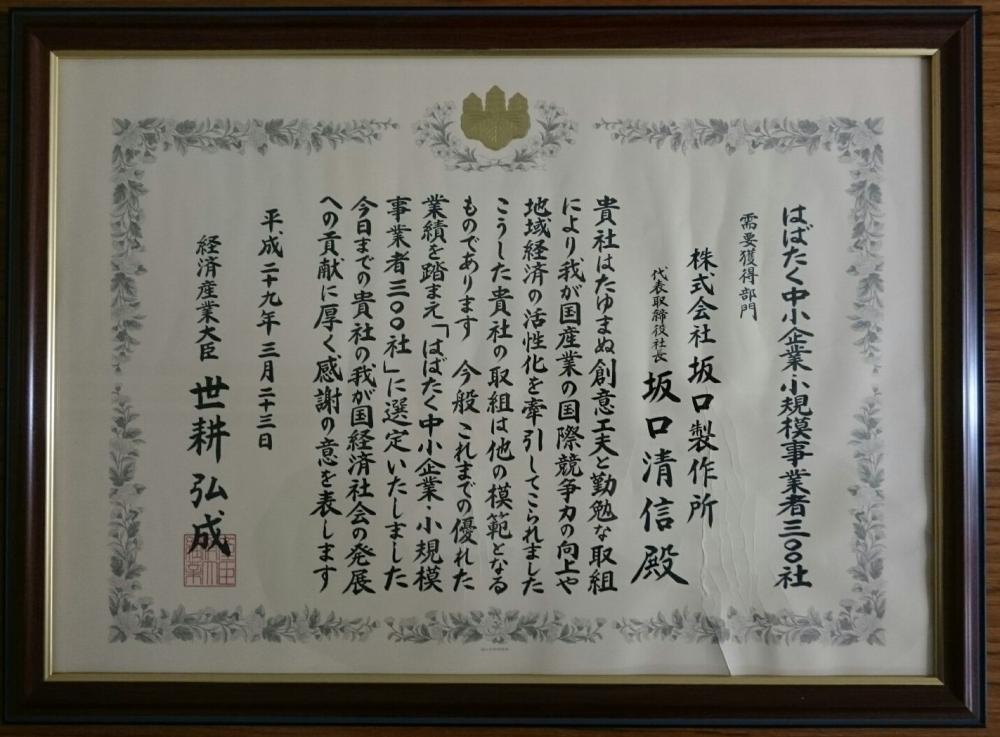 はばたく中小企業・小規模事業者三〇〇社
需要獲得部門
株式会社 坂口製作所
代表取締役社長 坂口清信殿
貴社はたゆまぬ創意工夫と勤勉な取組
により我が国産業の国際競争力の向上や
地域経済の活性化を牽引してこられました
こうした貴社の取組は他の模範となる
ものであります 今般これまでの優れた
業績を踏まえ「はばたく中小企業・小規模
事業者三〇〇社」に選定いたしました
今日までの貴社の我が国経済社会の発展
への貢献に厚く感謝の意を表します
平成二十九年三月二十三日
経済産業大臣 世耕弘成